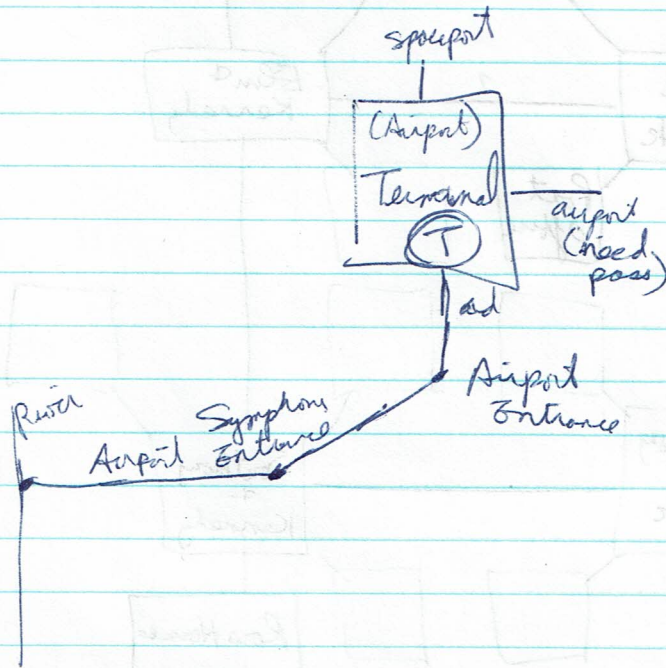 spaceport
(Airport)
Terminal
T
airport
(need
pass)
Airport
Entrance
River
Symphony
Entrance
Airport